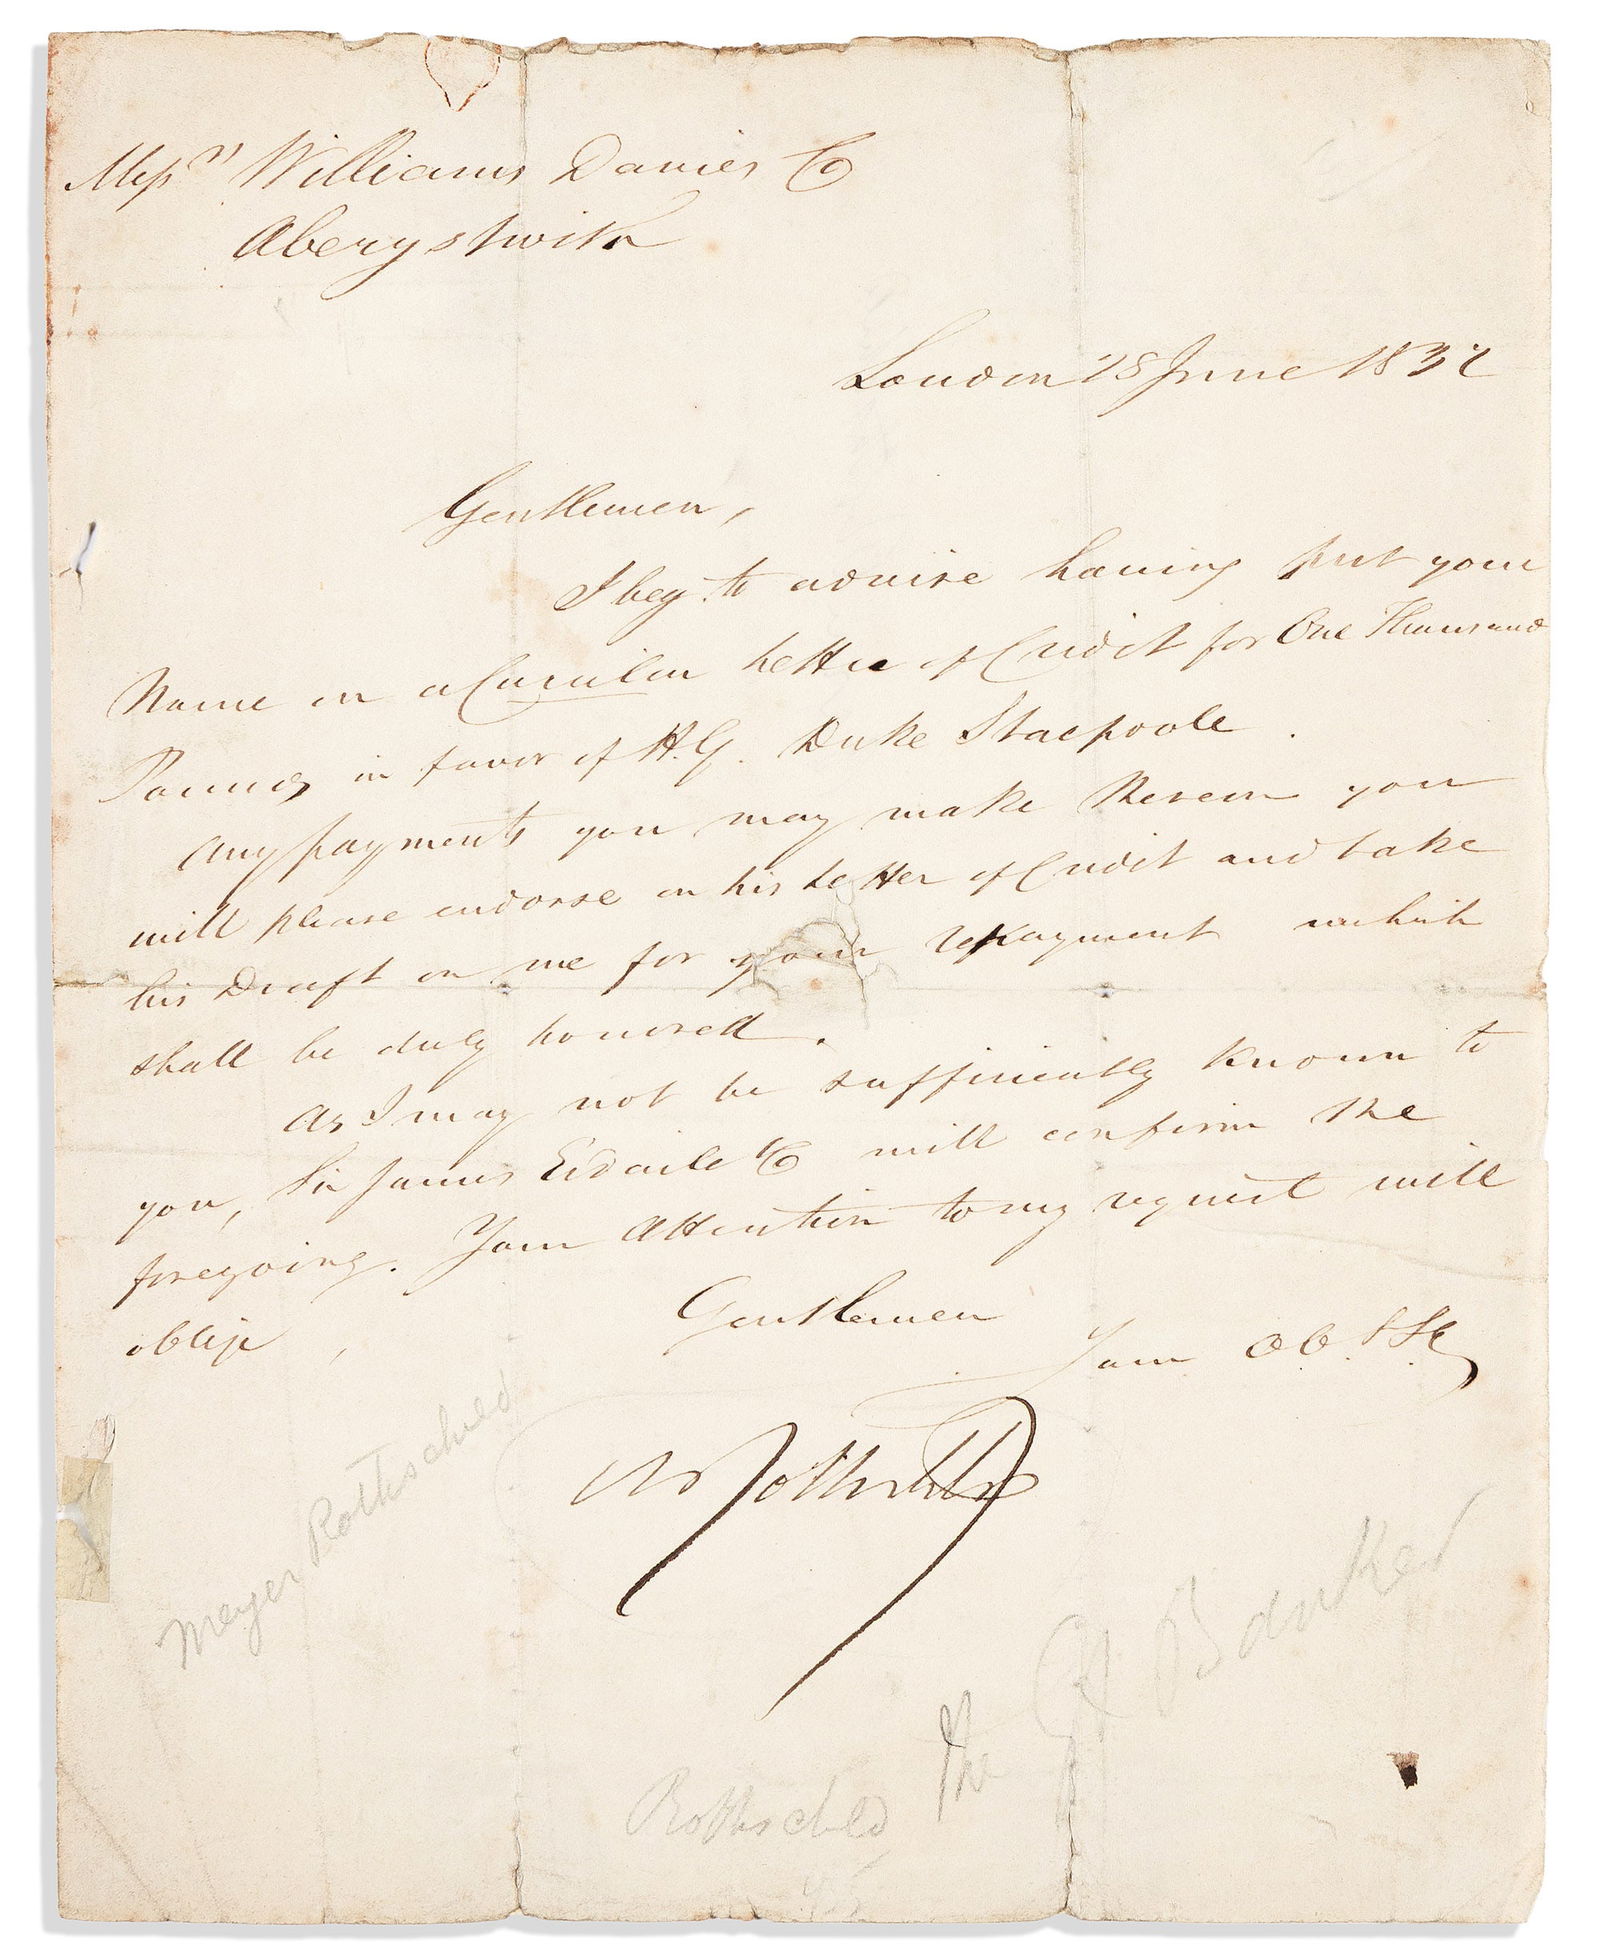 Messrs Williams Davies Co
Aberystwith
London 28 June 1832
Gentlemen,
I beg to advise having put your
Name on a Circular Letter of Credit for One Thousand
Pounds in favor of H. G. Duke Stacpoole.
Any payments you may make thereon you
will please endorse on his Letter of Credit and take
his Draft on me for your repayment which
shall be duly honored.
As I may not be sufficiently known to
you, Sir James Esdaile & Co will confirm the
foregoing. Your attention to my request will
oblige,
Gentlemen
Your Ob. St
NM Rothschild
Meyer Rothschied
the Gt Banker
Rothschild